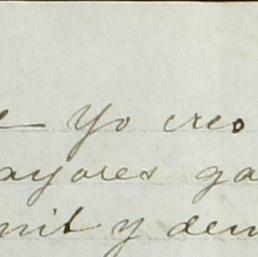 Yo creo
ayores ga
nit y dem